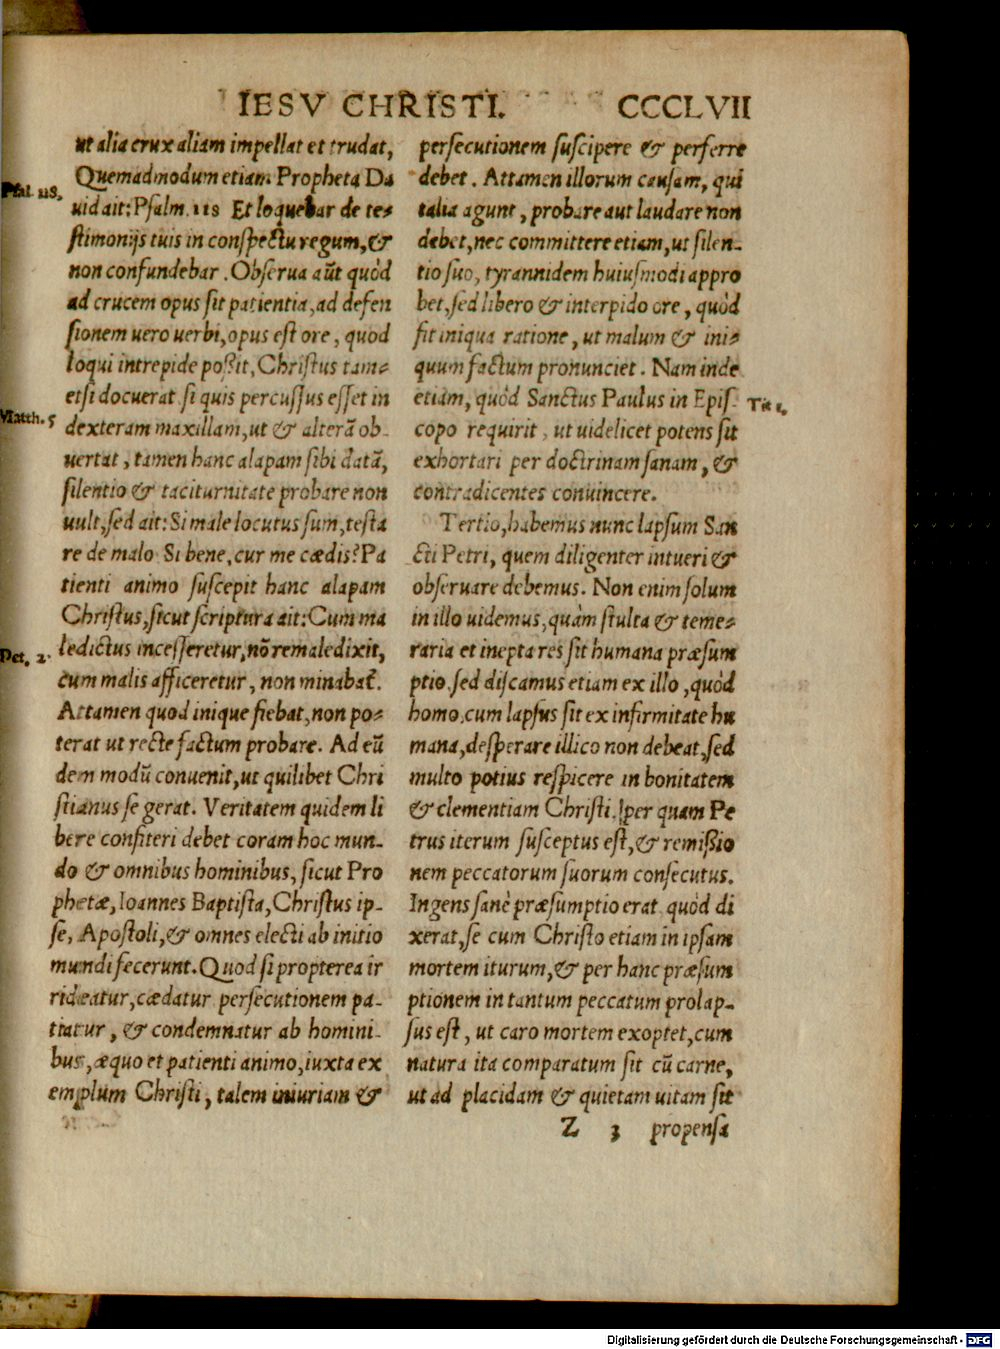 IESV CHRISTI. CCCLVII
ut alia crux aliam impellat et trudat,
Quemadmodum etiam Propheta Da
Psal. 118.
uid ait: Psalm. 118 Et loquebar de te⸗
stimonijs tuis in conspectu regum, &
non confundebar. Obserua aūt quòd
ad crucem opus sit patientia, ad defen
sionem uero uerbi, opus est ore, quod
loqui intrepide poßit, Christus tam⸗
etsi docuerat si quis percussus esset in
Matth. 5
dexteram maxillam, ut & alterā ob-
uertat, tamen hanc alapam sibi datā,
silentio & taciturnitate probare non
uult, sed ait: Si male locutus sum, testa
re de malo Si bene, cur me cædis? Pa
tienti animo suscepit hanc alapam
Christus, sicut scriptura ait: Cum ma
ledictus incesseretur, nō remaledixit,
Pet. 2.
cum malis afficeretur, non minabat̄.
Attamen quod inique fiebat, non po⸗
terat ut recte factum probare. Ad eū
dem modū conuenit, ut quilibet Chri
stianus se gerat. Veritatem quidem li
bere confiteri debet coram hoc mun-
do & omnibus hominibus, sicut Pro
phetæ, Ioannes Baptista, Christus ip-
se, Apostoli, & omnes electi ab initio
mundi fecerunt. Quod si propterea ir
rideatur, cædatur persecutionem pa-
tiatur, & condemnatur ab homini-
bus, æquo et patienti animo, iuxta ex
emplum Christi, talem iniuriam &
persecutionem suscipere & perferre
debet. Attamen illorum causam, qui
talia agunt, probare aut laudare non
debet, nec committere etiam, ut silen-
tio suo, tyrannidem huiusmodi appro
bet, sed libero & interpido ore, quòd
fit iniqua ratione, ut malum & ini⸗
quum factum pronunciet. Nam inde
etiam, quòd Sanctus Paulus in Epis-
Tit 1.
copo requirit, ut uidelicet potens sit
exhortari per doctrinam sanam, &
contradicentes conuincere.
Tertio, habemus nunc lapsum San
cti Petri, quem diligenter intueri &
obseruare debemus. Non enim solum
in illo uidemus, quàm stulta & teme⸗
raria et inepta res sit humana præsum
ptio, sed discamus etiam ex illo, quòd
homo, cum lapsus sit ex infirmitate hu
mana, desperare illico non debeat, sed
multo potius respicere in bonitatem
& clementiam Christi, per quam Pe
trus iterum susceptus est, & remißio
nem peccatorum suorum consecutus.
Ingens sanè præsumptio erat quòd di
xerat, se cum Christo etiam in ipsam
mortem iturum, & per hanc præsum
ptionem in tantum peccatum prolap-
sus est, ut caro mortem exoptet, cum
natura ita comparatum sit cū carne,
ut ad placidam & quietam uitam sit
Z 3 propensa
Digitalisierung gefördert durch die Deutsche Forschungsgemeinschaft - DFG